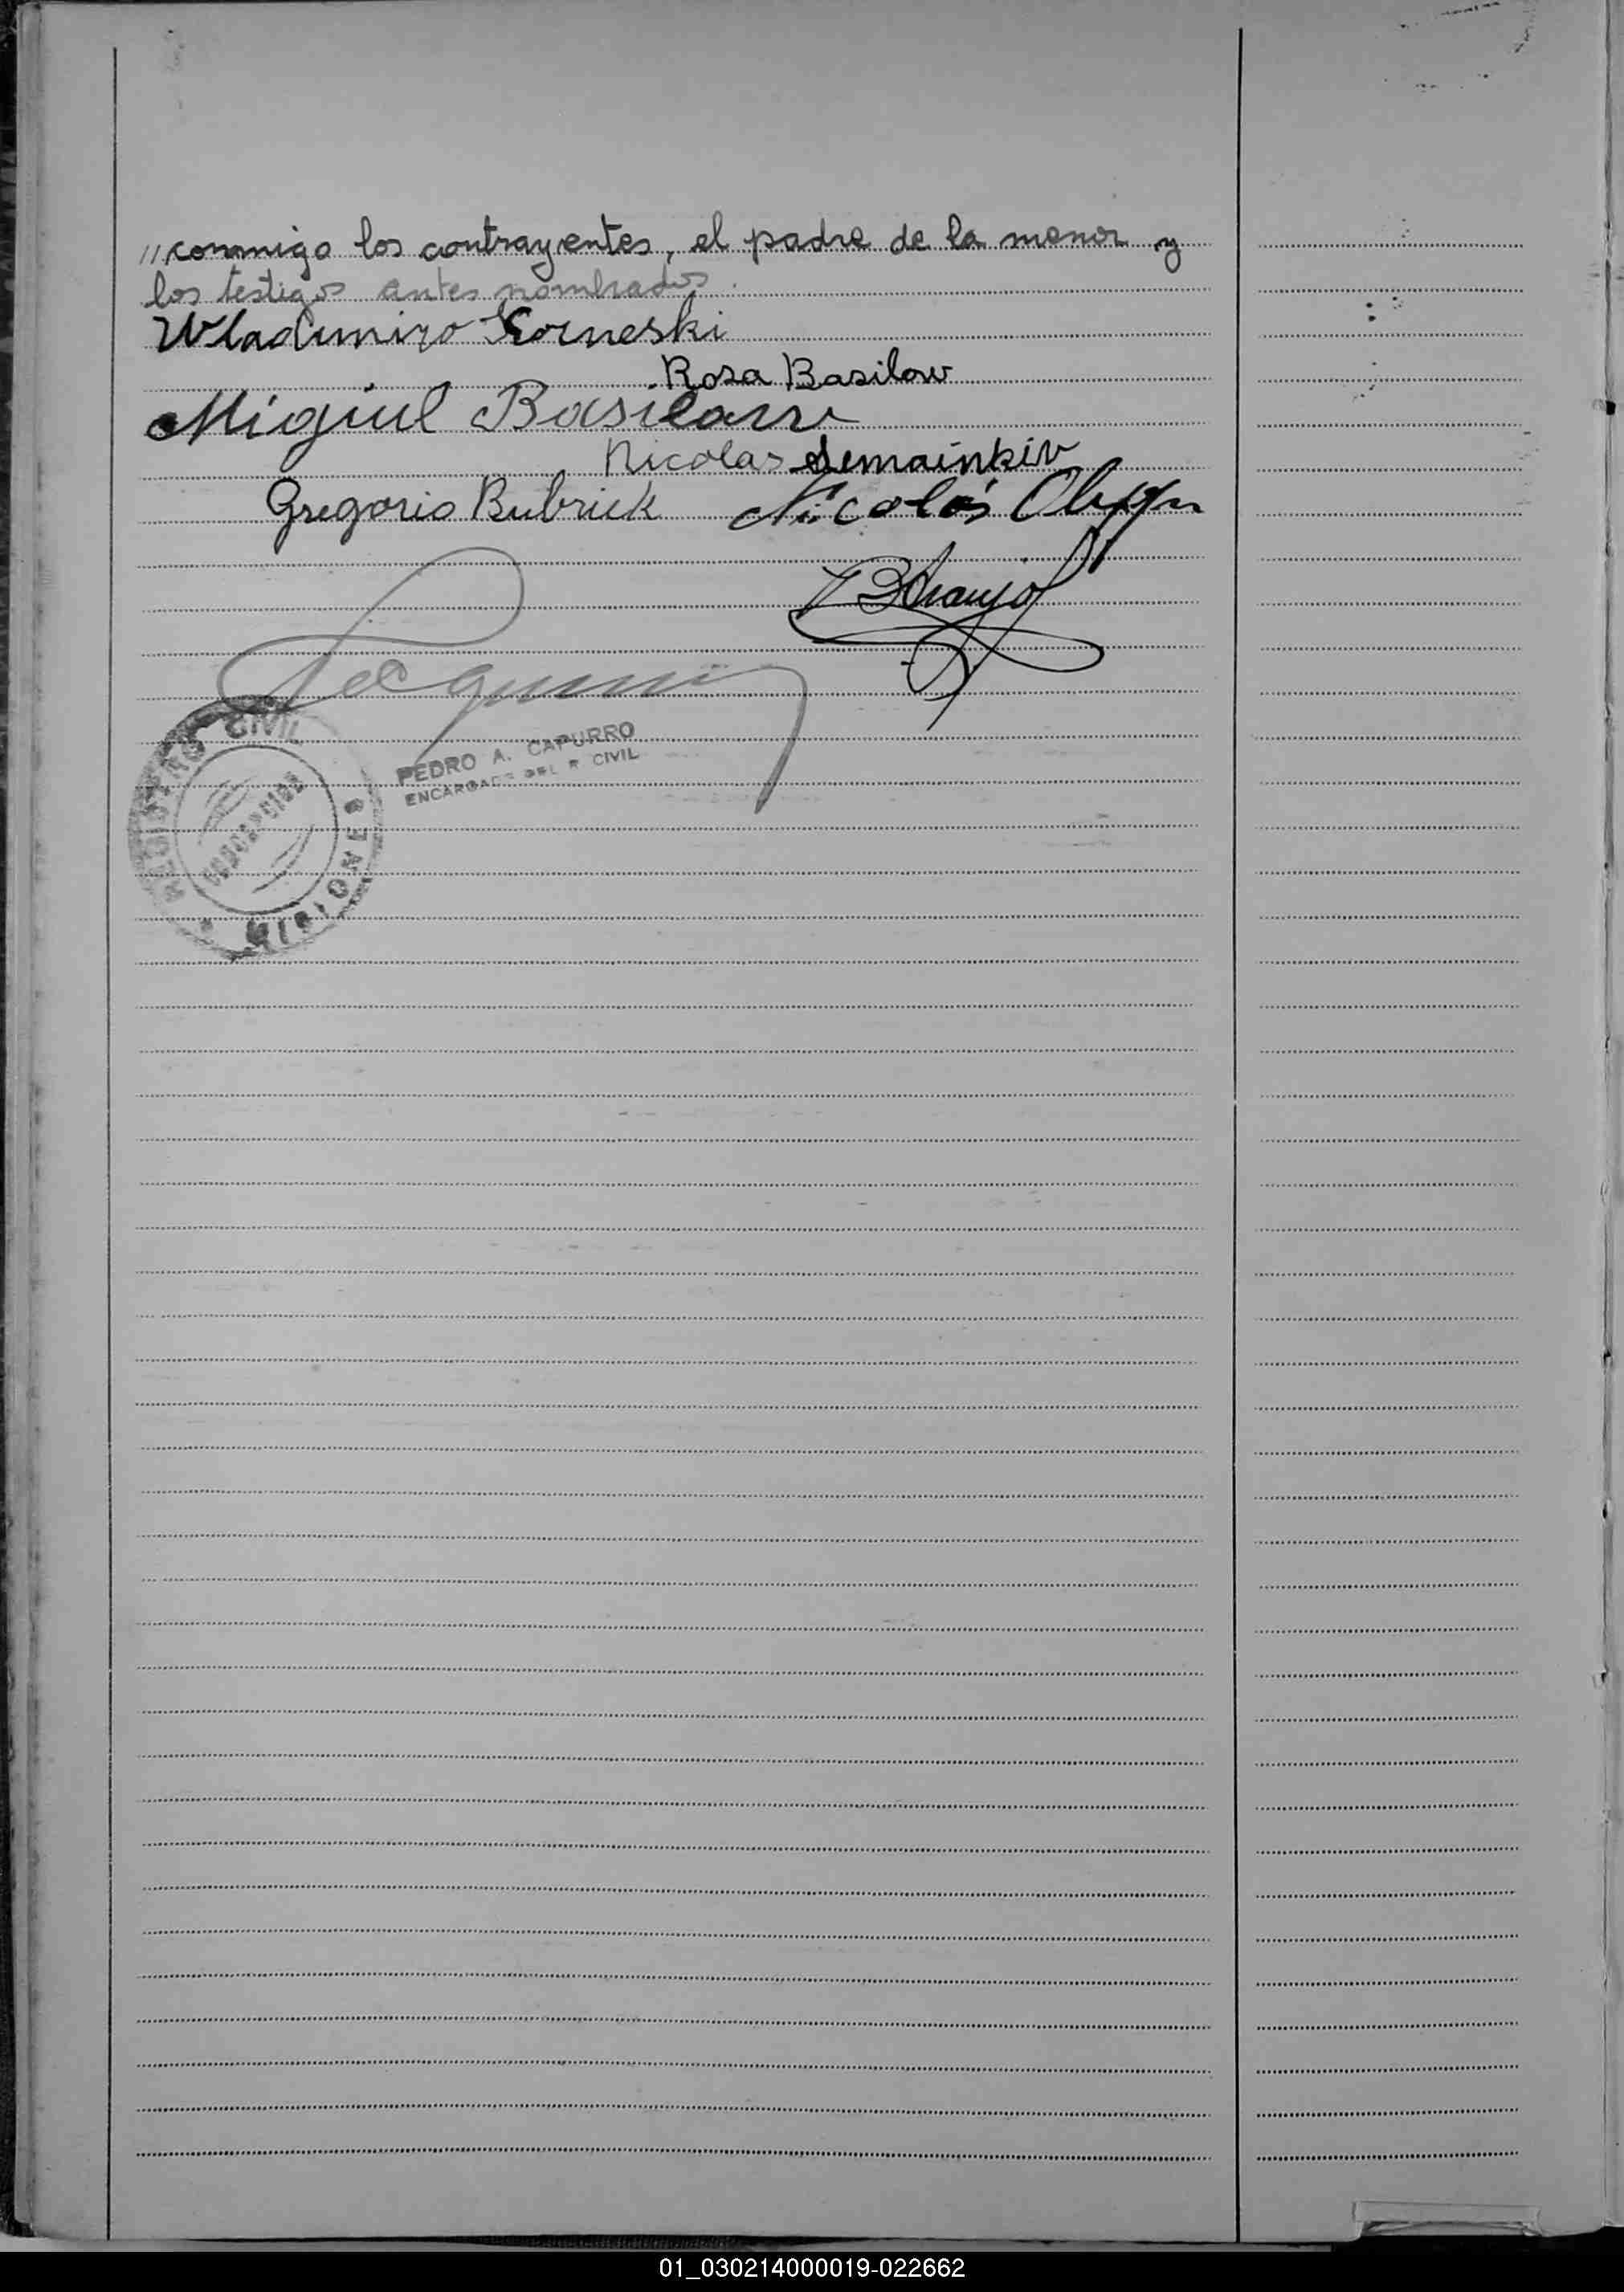 // conmigo los contrayentes, el padre de la menor y
los testigos antes nombrados.
Wladimiro Korneski
Rosa Basilow
Miguiel Basilow
Nicolas Semainkin
Gregorio Bubriek Nicolás
REGISTRO CIVIL
MISIONES
PEDRO A. CAPURRO
ENCARGADO DEL R CIVIL
01_030214000019-022662